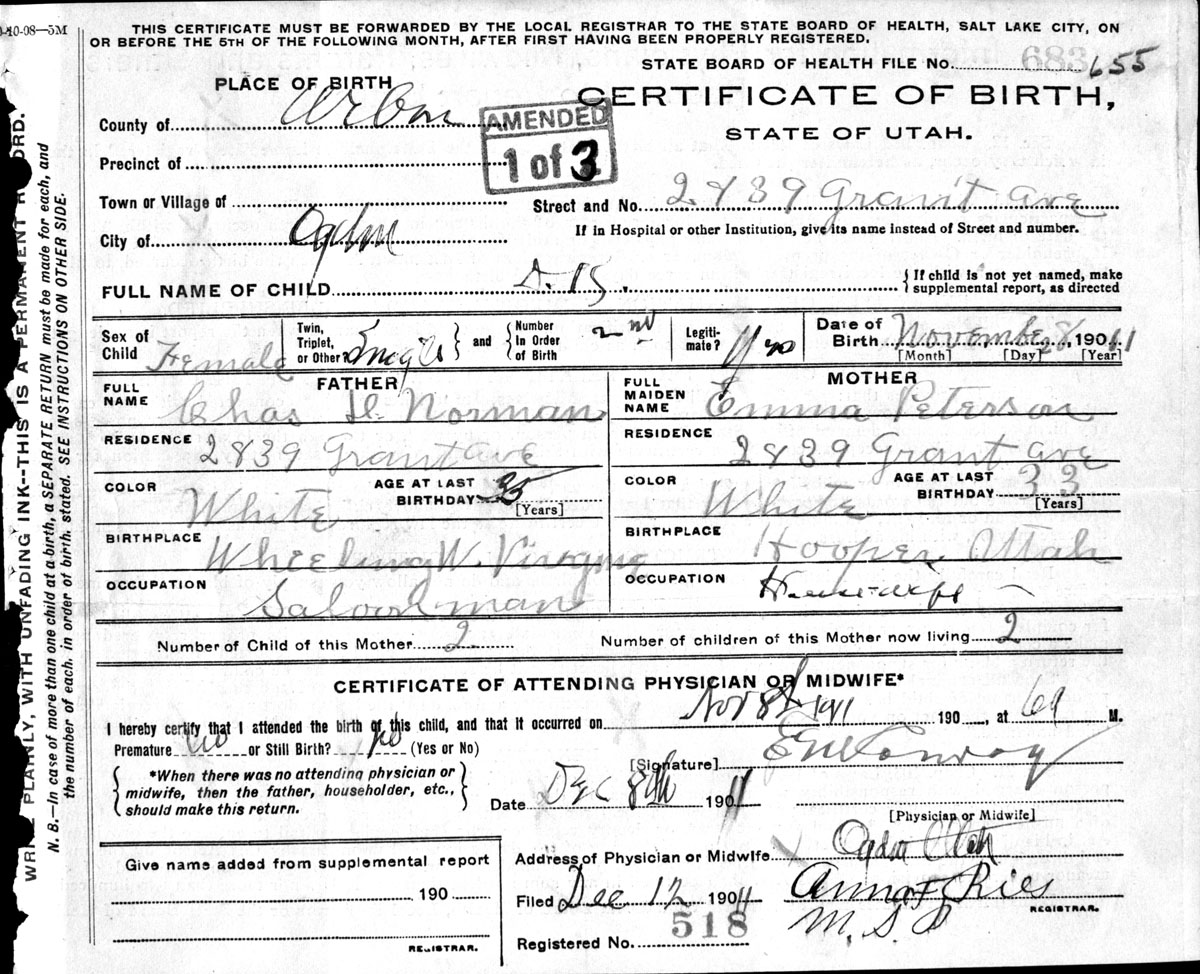 0-10-08—5M
THIS CERTIFICATE MUST BE FORWARDED BY THE LOCAL REGISTRAR TO THE STATE BOARD OF HEALTH, SALT LAKE CITY, ON
OR BEFORE THE 5TH OF THE FOLLOWING MONTH, AFTER FIRST HAVING BEEN PROPERLY REGISTERED.
STATE BOARD OF HEALTH FILE No. 655
683
PLACE OF BIRTH
CERTIFICATE OF BIRTH,
STATE OF UTAH.
County of
AMENDED
1 of 3
Precinct of
Town or Village of
Street and No. 2839 Grant Ave
City of Ogden
If in Hospital or other Institution, give its name instead of Street and number.
FULL NAME OF CHILD
{ If child is not yet named, make
supplemental report, as directed
Sex of Child Female
Twin, Triplet, or Other? Single } and { Number In Order of Birth 2nd
Legitimate? Yes
Date of Birth November 8, 1901 11
[Month] [Day] [Year]
FATHER
FULL NAME Chas H. Norman
RESIDENCE 2839 Grant Ave
COLOR White
AGE AT LAST BIRTHDAY 35
[Years]
BIRTHPLACE Wheeling W. Virogina
OCCUPATION Saloon man
MOTHER
FULL MAIDEN NAME Emma Peterson
RESIDENCE 2839 Grant Ave
COLOR White
AGE AT LAST BIRTHDAY 33
[Years]
BIRTHPLACE Hooper, Utah
OCCUPATION House-wife
Number of Child of this Mother 2
Number of children of this Mother now living 2
CERTIFICATE OF ATTENDING PHYSICIAN OR MIDWIFE*
I hereby certify that I attended the birth of this child, and that it occurred on Nov 8th 1911 190 , at 6 a M.
Premature no or Still Birth? no (Yes or No)
[Signature] Conroy
{ *When there was no attending physician or
midwife, then the father, householder, etc.,
should make this return. }
Date Dec 8th 1901 11
[Physician or Midwife]
Give name added from supplemental report
190 .
REGISTRAR.
Address of Physician or Midwife Ogden Utah
Filed Dec 12 1904 11
Anna F Ries
REGISTRAR.
M. S. P
Registered No. 518
WRITE PLAINLY, WITH UNFADING INK--THIS IS A PERMANENT RECORD.
N. B.—In case of more than one child at a birth, a SEPARATE RETURN must be made for each, and
the number of each. in order of birth. stated. SEE INSTRUCTIONS ON OTHER SIDE.